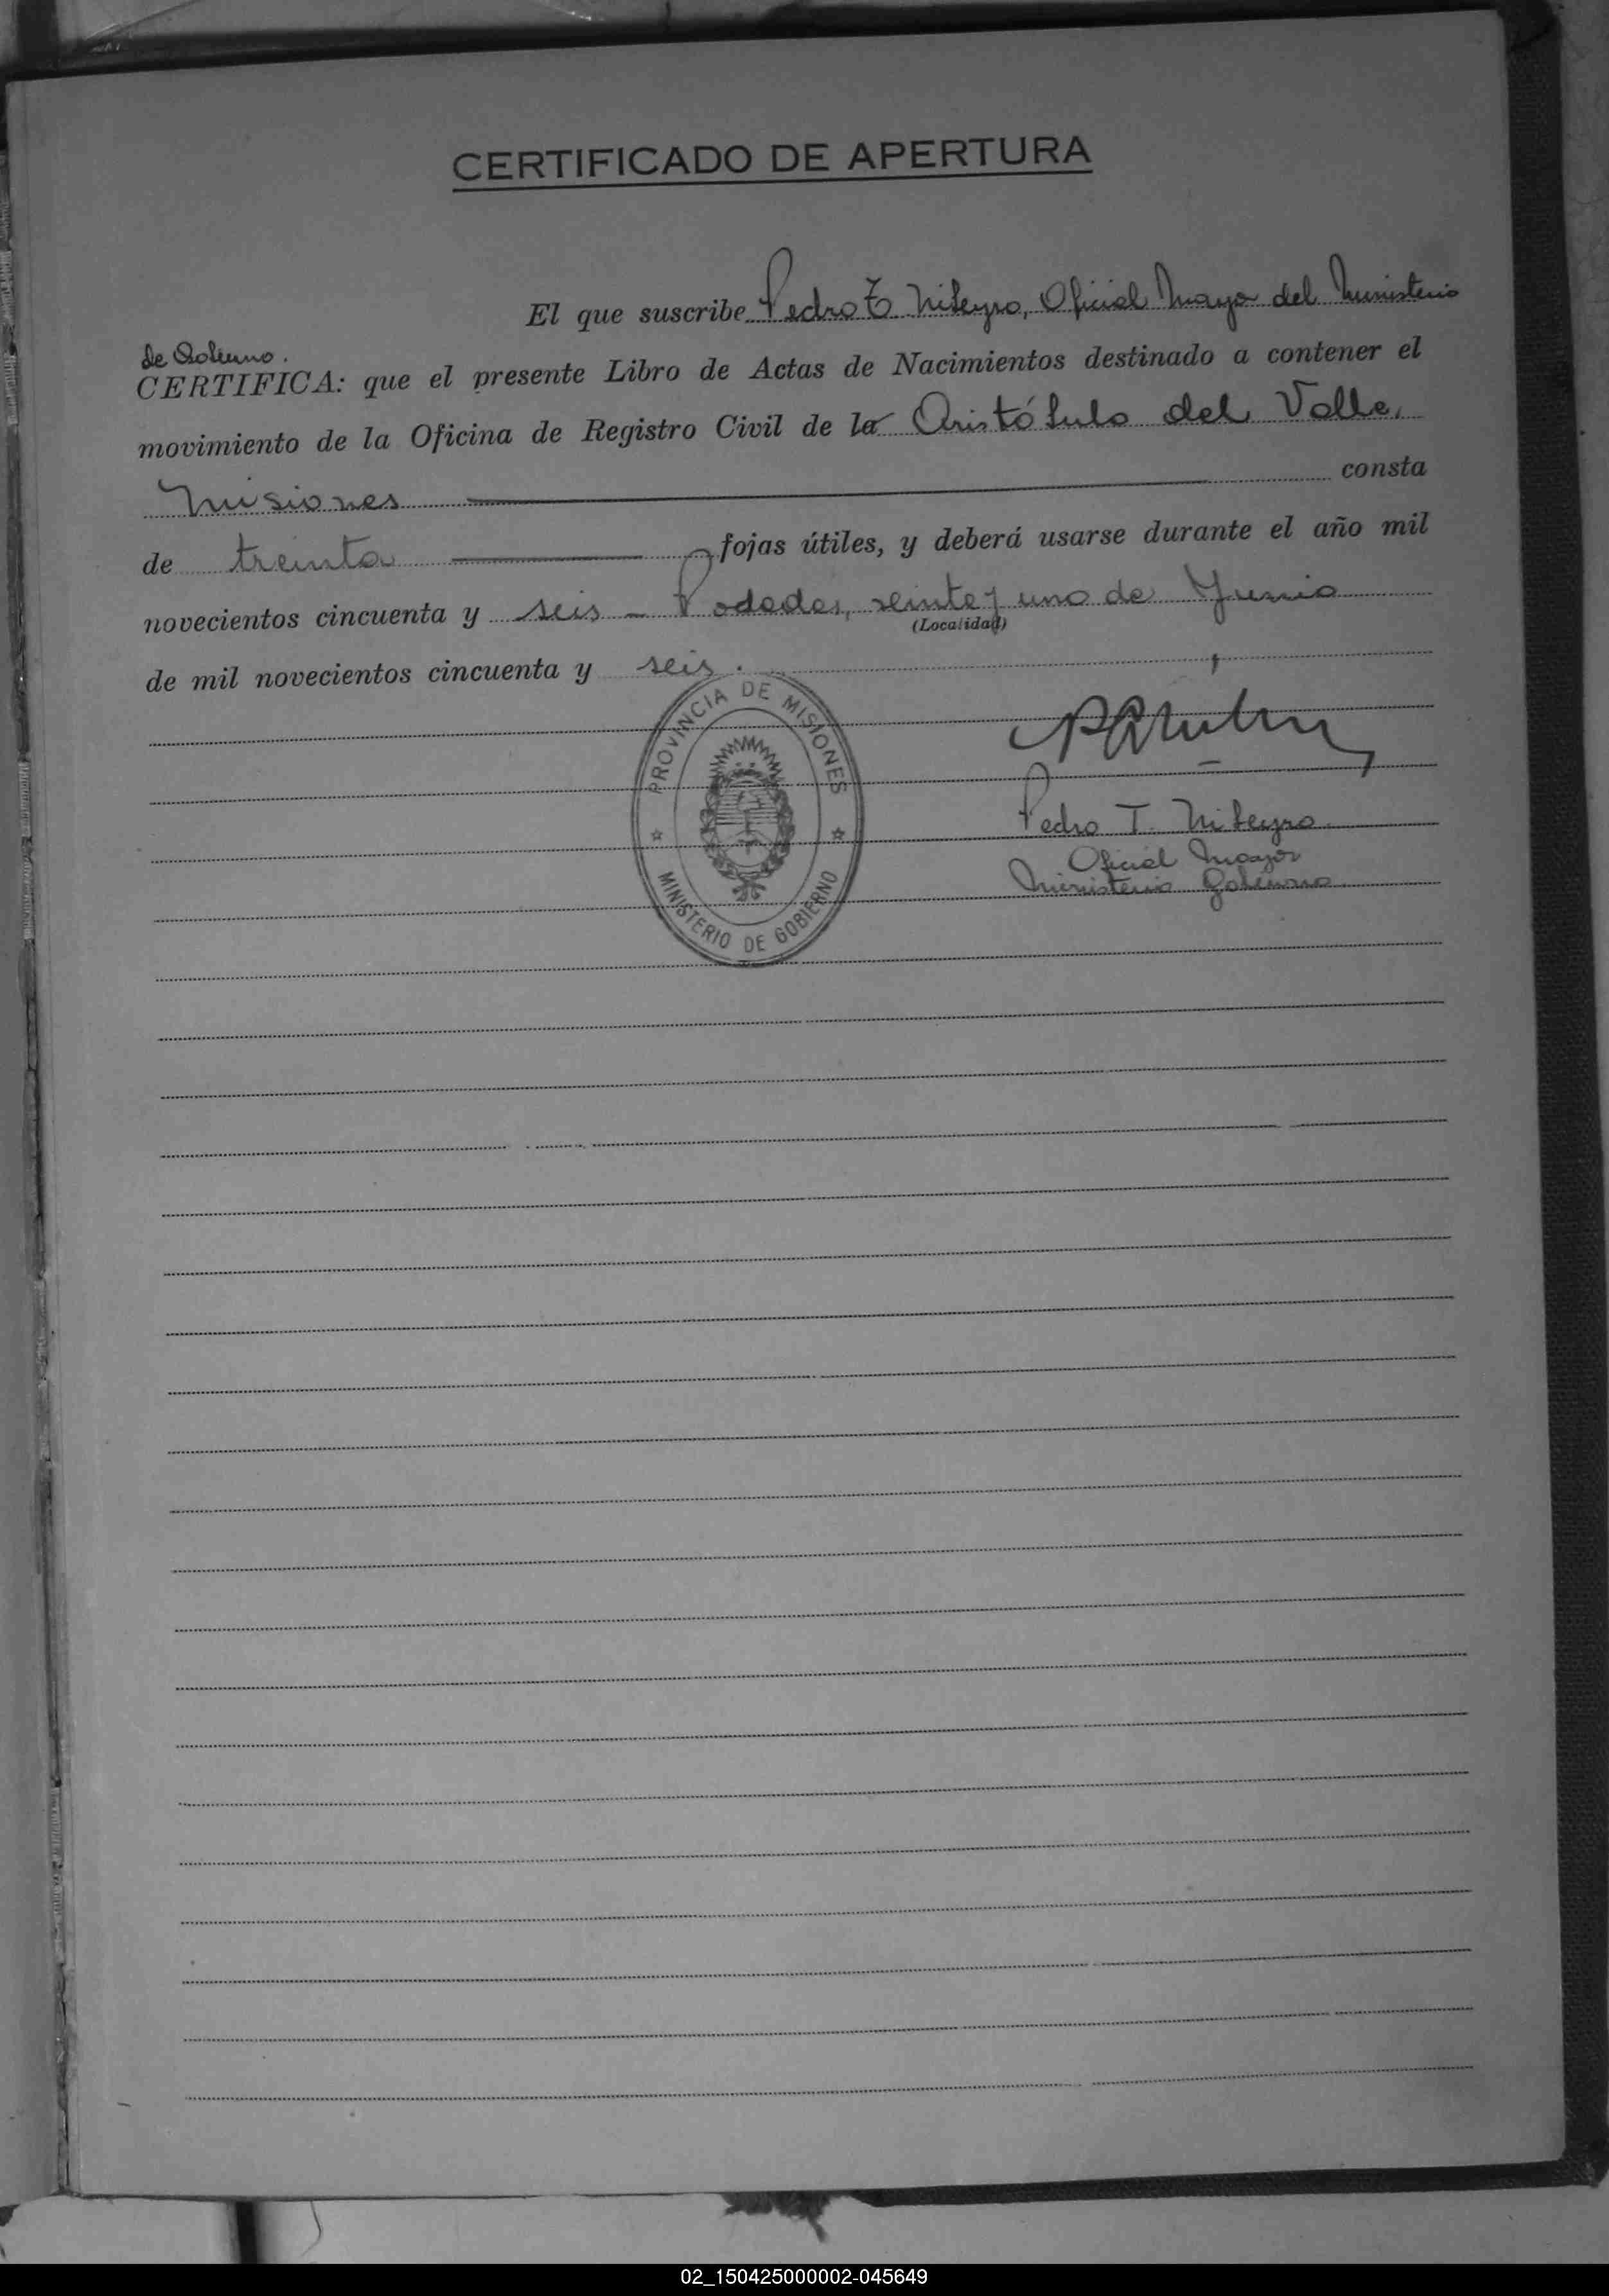 CERTIFICADO DE APERTURA
El que suscribe Pedro T. Niteyro, Oficial Mayor del Ministerio
de Gobierno.
CERTIFICA: que el presente Libro de Actas de Nacimientos destinado a contener el
movimiento de la Oficina de Registro Civil de la Aristóbulo del Valle,
Misiones consta
de treinta fojas útiles, y deberá usarse durante el año mil
novecientos cincuenta y seis - Posadas, veinte y uno de Junio
(Localidad)
de mil novecientos cincuenta y seis.
PROVINCIA DE MISIONES
MINISTERIO DE GOBIERNO
Pedro T. Niteyro
Oficial Mayor
Ministerio Gobierno
02_150425000002-045649